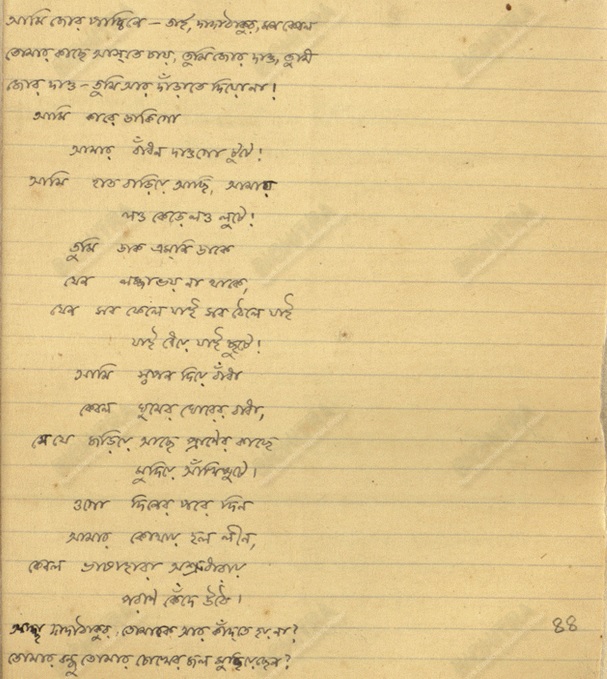 আমি জোর পাচ্চিনে – ভাই, দাদাঠাকুর, মন কেবল
তোমার কাছে আসতে চায়, তুমি জোর দাও, তুমি
জোর দাও – তুমি আর দাঁড়াতে দিয়োনা!
আমি কারে ডাকিগো
আমার বাঁধন দাওগো টুটে!
আমি হাত বাড়িয়ে আছি, আমায়
লও কেড়ে লও লুটে!
তুমি ডাক এমনি ডাকে
যেন লজ্জাভয় না থাকে,
যেন সব ফেলে যাই সব ঠেলে যাই
যাই ধেয়ে যাই ছুটে!
আমি স্বপন দিয়ে বাঁধা
কেবল ঘুমের ঘোরের বাধা,
সে যে জড়িয়ে আছে প্রাণের কাছে
মুদিয়ে আঁখিপুটে।
ওগো দিনের পরে দিন
আমার কোথায় হল লীন,
কেবল ভাষাহারা অশ্রুধারায়
পরাণ কেঁদে উঠে।
আচ্ছা দাদাঠাকুর, তোমাকে আর কাঁদতে হয় না?
তোমার বন্ধু তোমার চোখের জল মুছিয়েছেন?
৪৪